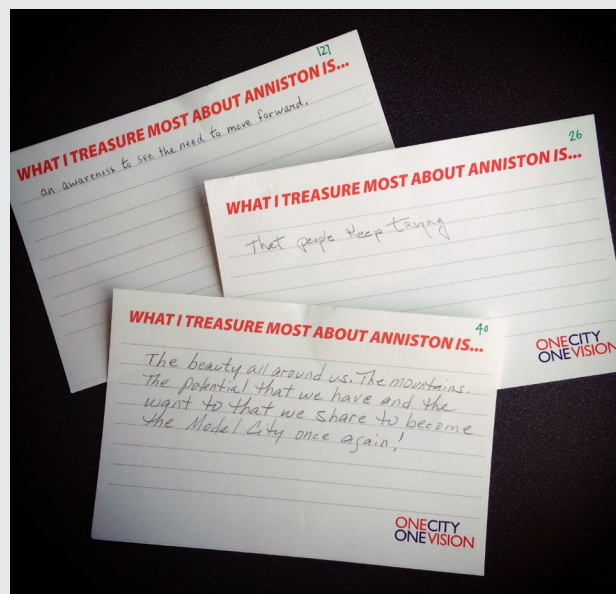 127
WHAT I TREASURE MOST ABOUT ANNISTON IS...
an awareness to see the need to move forward.
26
WHAT I TREASURE MOST ABOUT ANNISTON IS...
That people keep trying
ONECITY
ONEVISION
40
WHAT I TREASURE MOST ABOUT ANNISTON IS...
The beauty all around us. The mountains.
The potential that we have and the
want to that we share to become
the Model City once again!
ONECITY
ONEVISION